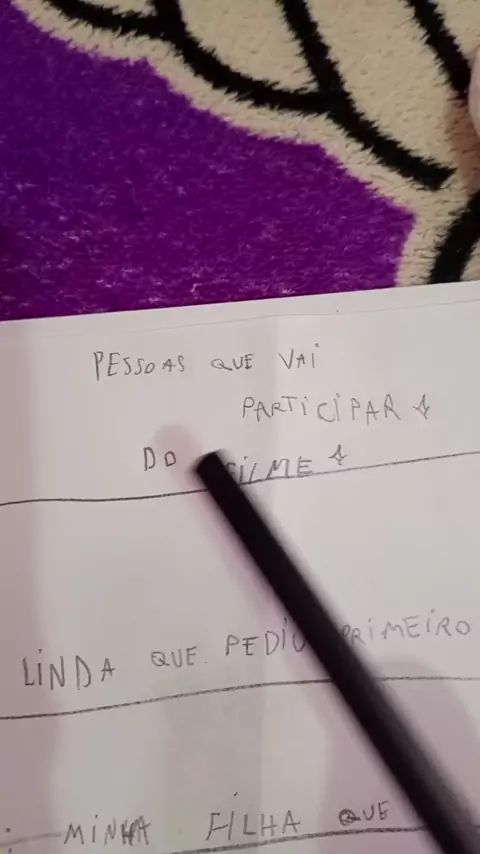 PESSOAS QUE VAI
PARTICIPAR
DO FILME
LINDA QUE PEDIU PRIMEIRO
MINHA FILHA QUE